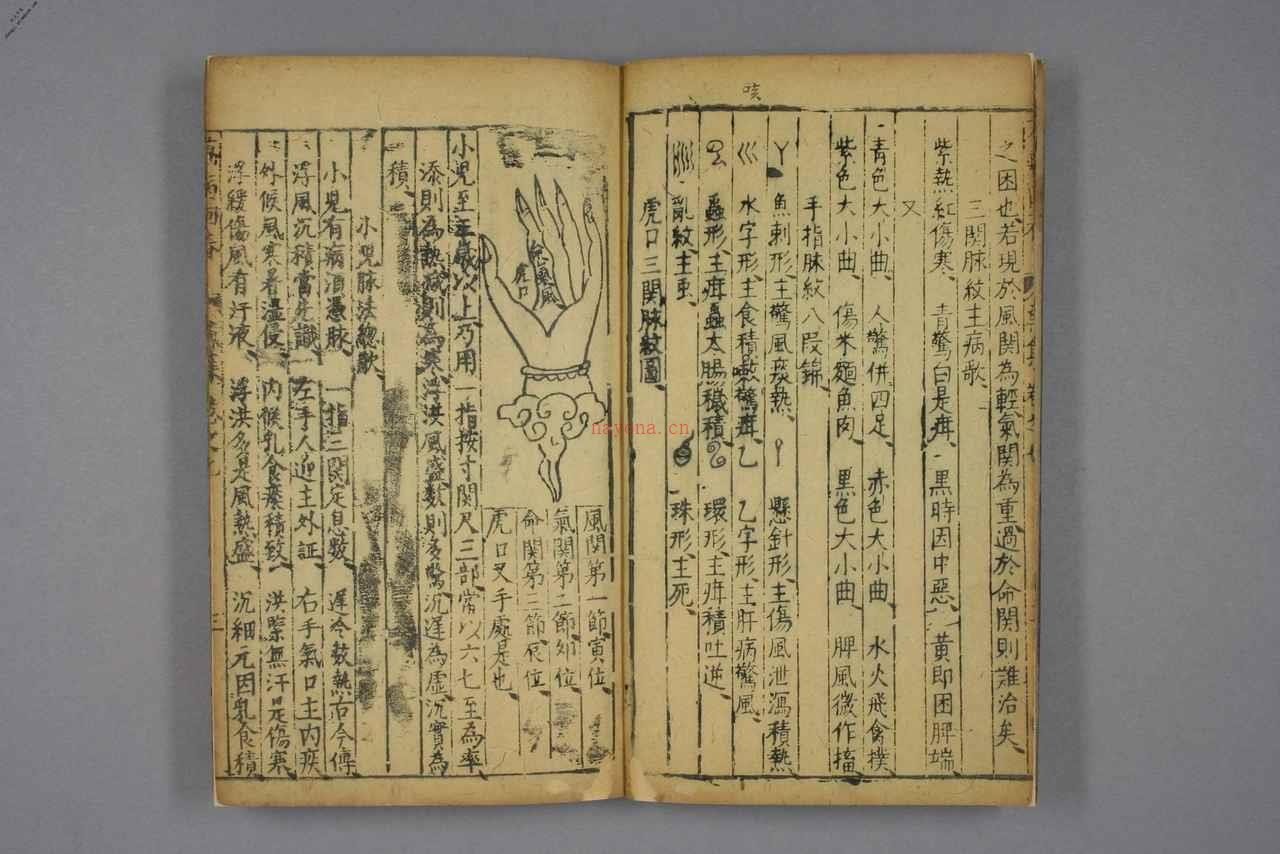 咳
之困也若現於風関為輕氣関為重過於命関則難治矣
三関脉紋主病歌
紫熱紅傷寒 青驚白是疳 黒時因中惡 黄即困脾端
又
青色大小曲 人驚併四足 赤色大小曲 水火飛禽撲
紫色大小曲 傷米麵魚肉 黒色大小曲 脾風微作搐
手指脉紋八段錦
魚刺形主驚風痰熱 懸針形主傷風泄瀉積熱
水字形主食積驚疳 乙字形主肝病驚風
蟲形主疳蟲大腸穢積 環形主疳積吐逆
亂紋主虫 珠形主死
虎口三関脉紋圖
命 氣 風
虎口
風関第一節寅位
氣関第二節卯位
命関第三節辰位
虎口叉手處是也
小児至三歳以上乃用一指按寸関尺三部常以六七至為率
添則為熱减則為寒浮洪風盛数則多驚沉遲為虛沉實為
積
小児脉法總歌
小児有病須憑脉 一指三関定息数 遲冷数熱古今傳
浮風沉積當先識 左手人迎主外証 右手氣口主内疾
外候風寒暑濕侵 内候乳食痰積致 洪緊無汗是傷寒
浮緩傷風有汗液 浮洪多是風熱盛 沉細元因乳食積
三
nayona.cn